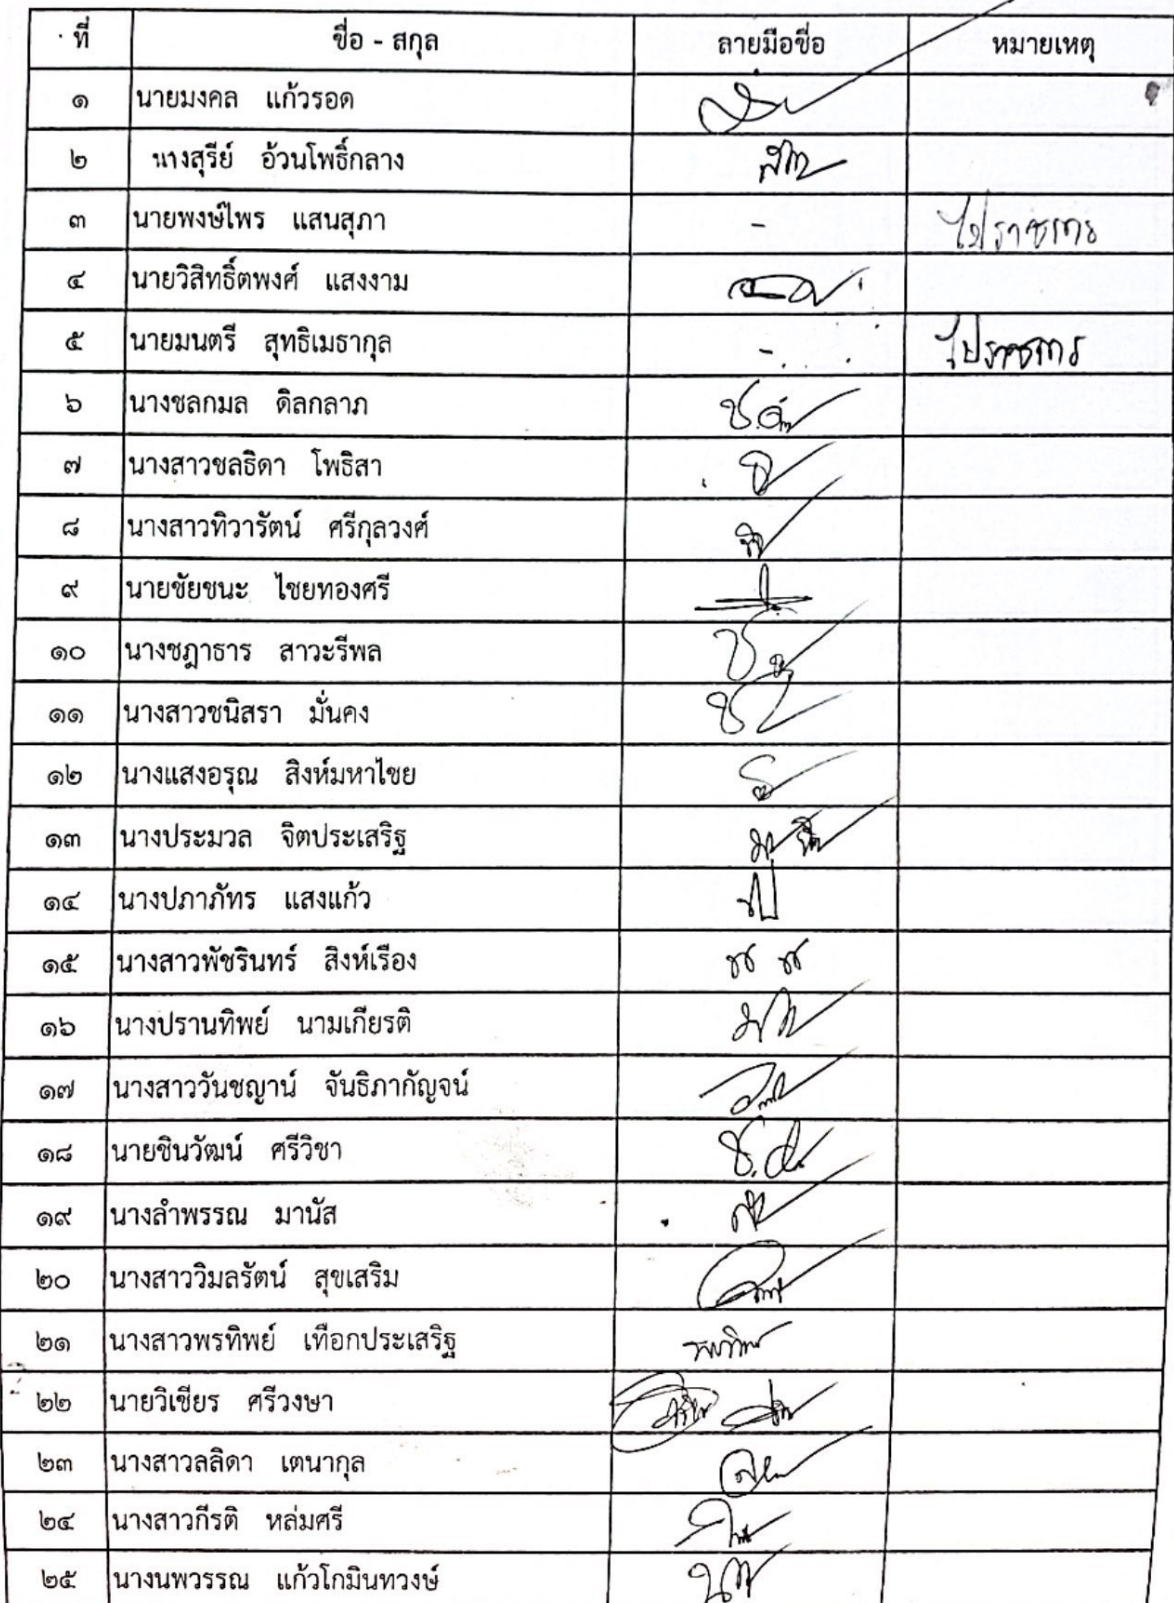 ที่ ชื่อ - สกุล ลายมือชื่อ หมายเหตุ
๑ นายมงคล แก้วรอด
๒ นางสุรีย์ อ้วนโพธิ์กลาง
๓ นายพงษ์ไพร แสนสุภา - ไปราชการ
๔ นายวิสิทธิ์ตพงศ์ แสงงาม
๕ นายมนตรี สุทธิเมธากุล - ไปราชการ
๖ นางชลกมล ดิลกลาภ
๗ นางสาวชลธิดา โพธิสา
๘ นางสาวทิวารัตน์ ศรีกุลวงศ์
๙ นายชัยชนะ ไชยทองศรี
๑๐ นางชฎาธาร สาวะรีพล
๑๑ นางสาวชนิสรา มั่นคง
๑๒ นางแสงอรุณ สิงห์มหาไชย
๑๓ นางประมวล จิตประเสริฐ
๑๔ นางปภาภัทร แสงแก้ว
๑๕ นางสาวพัชรินทร์ สิงห์เรือง
๑๖ นางปรานทิพย์ นามเกียรติ
๑๗ นางสาววันชญาน์ จันธิภากัญจน์
๑๘ นายชินวัฒน์ ศรีวิชา
๑๙ นางลำพรรณ มานัส
๒๐ นางสาววิมลรัตน์ สุขเสริม
๒๑ นางสาวพรทิพย์ เทือกประเสริฐ
๒๒ นายวิเชียร ศรีวงษา
๒๓ นางสาวลลิดา เตนากุล
๒๔ นางสาวกีรติ หล่มศรี
๒๕ นางนพวรรณ แก้วโกมินทวงษ์